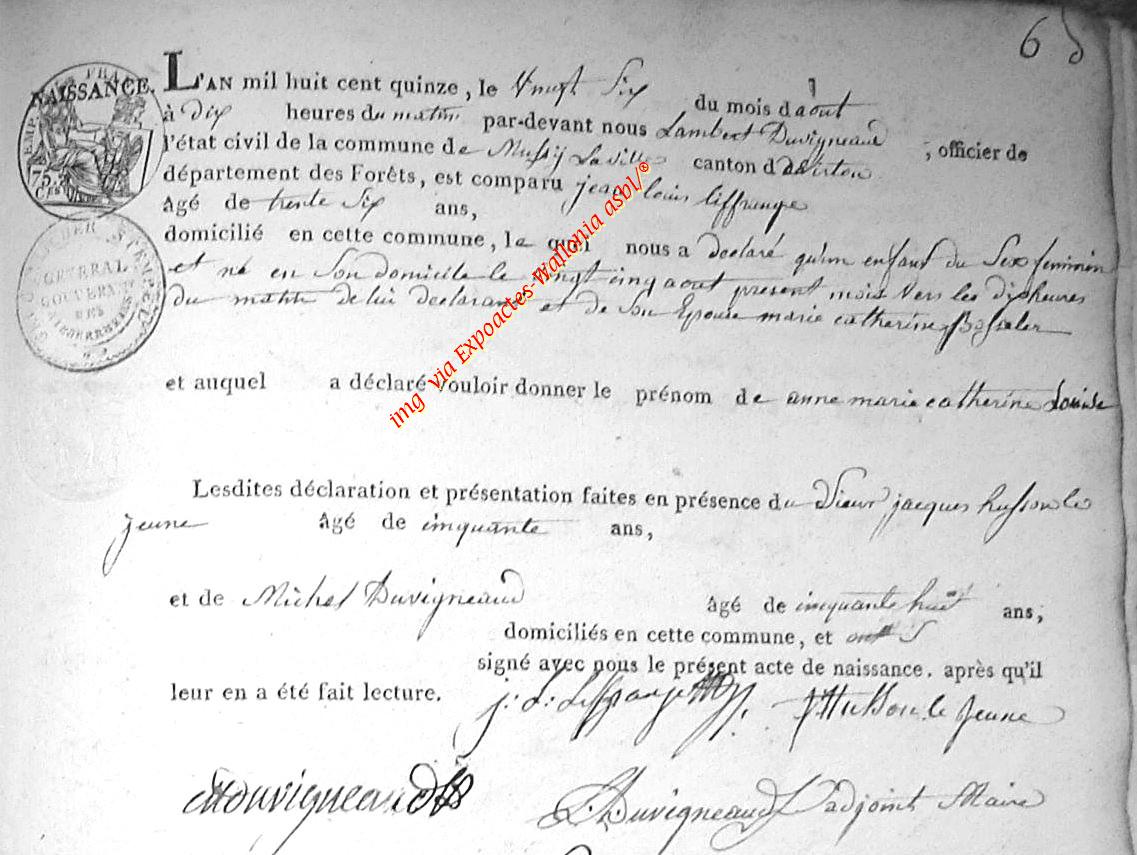 6
NAISSANCE. L'AN mil huit cent quinze, le vingt Six du mois d'aout
à dix heures du matin par-devant nous Lambert Duvigneaud, officier de
l'état civil de la commune de Mussy Laville canton d virton
département des Forêts, est comparu jean louis liffrange
âgé de trente Six ans,
domicilié en cette commune, le quel nous a declaré qu'un enfant du Sex feminin
et né en Son domicile le vingt cinq aout present mois vers les dix heures
du matin de lui declarant et de Son Epouse marie catherine
et auquel a déclaré vouloir donner le prénom de anne marie catherine Louise
Lesdites déclaration et présentation faites en présence du Sieur jacques husson le
jeune âgé de cinquante ans,
et de Michel Duvigneaud âgé de cinquante huit ans,
domiciliés en cette commune, et ont
signé avec nous le présent acte de naissance, après qu'il
leur en a été fait lecture.
j. L. Liffrange J Husson le Jeune
MDuvigneaud L Duvigneaud L'adjoint Maire
EMP. FRA
75
CES
TIMBRE
GENERAL
GOUVERNT
DES
img via Expoactes-Wallonia asbl/©